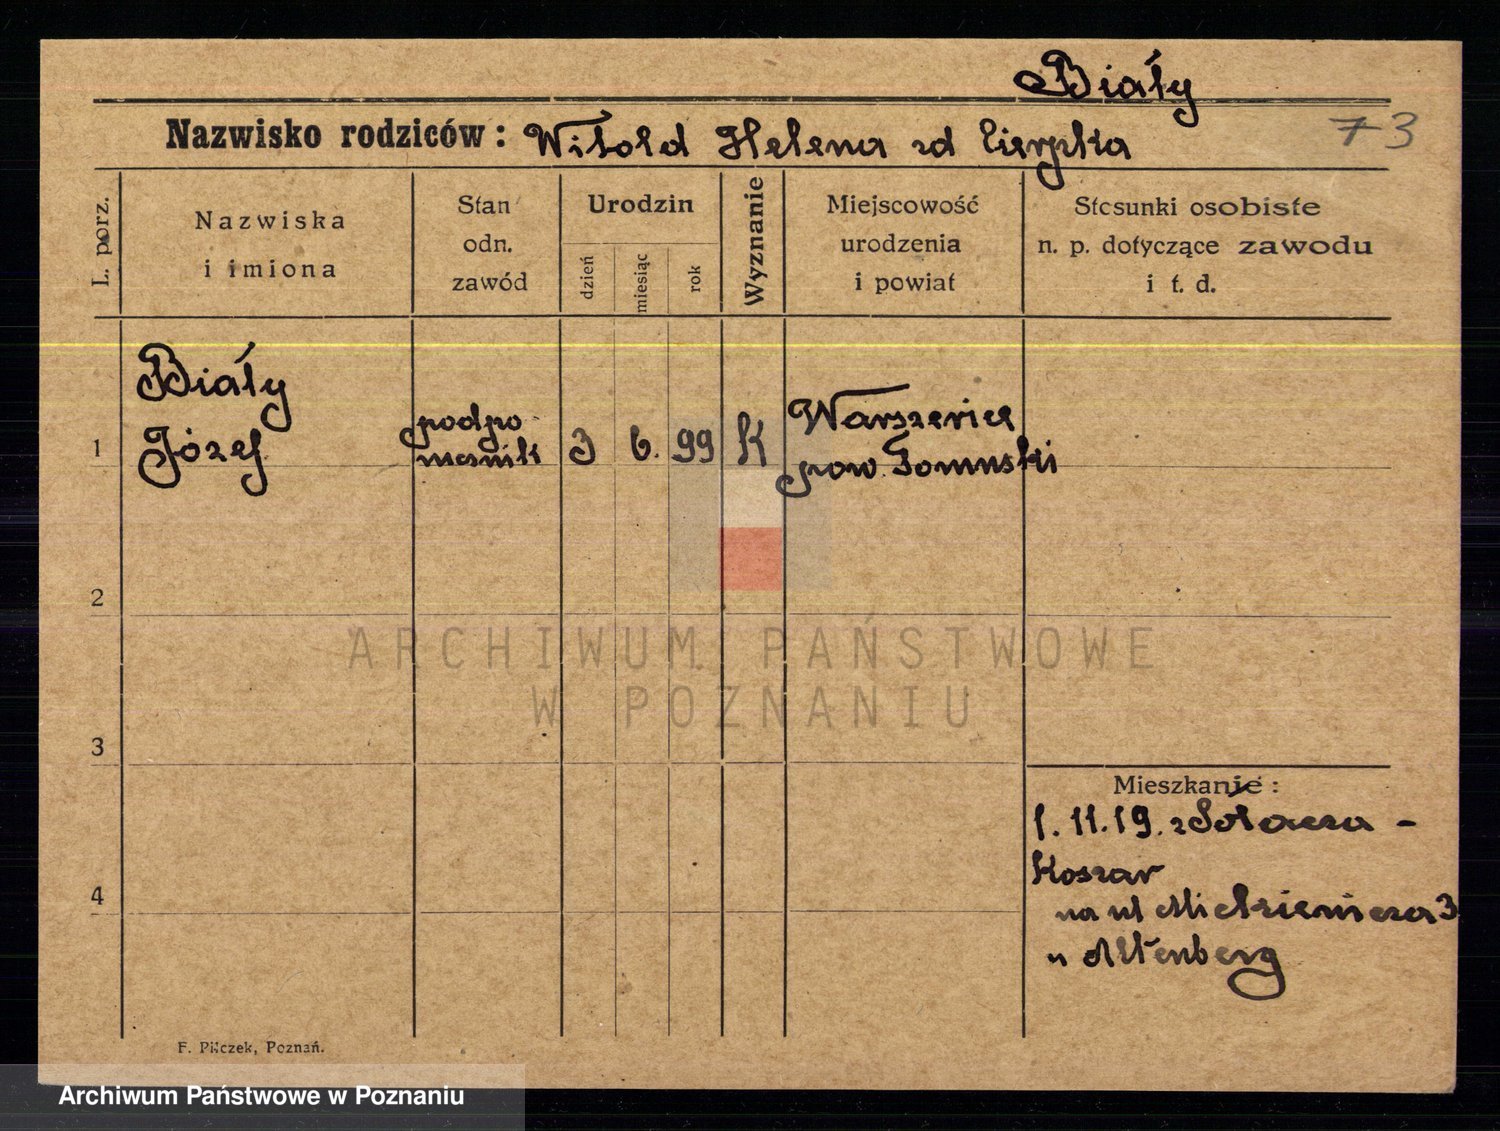 Biały
Nazwisko rodziców: Witold Helena zd Cierpka
73
L. porz.
Nazwiska i imiona
Stan odn. zawód
Urodzin
dzień
miesiąc
rok
Wyznanie
Miejscowość urodzenia i powiat
Stosunki osobiste n. p. dotyczące zawodu i t. d.
1
Biały
Józef
podpo
rucznik
3 6. 99 K
pow.
2
ARCHIWUM PAŃSTWOWE
W POZNANIU
3
Mieszkanie:
1.11.19. z Sołacza -
Koszar
na ul Mickiewicza 3
u Altenberg
4
F. Pilczek, Poznań.
Archiwum Państwowe w Poznaniu